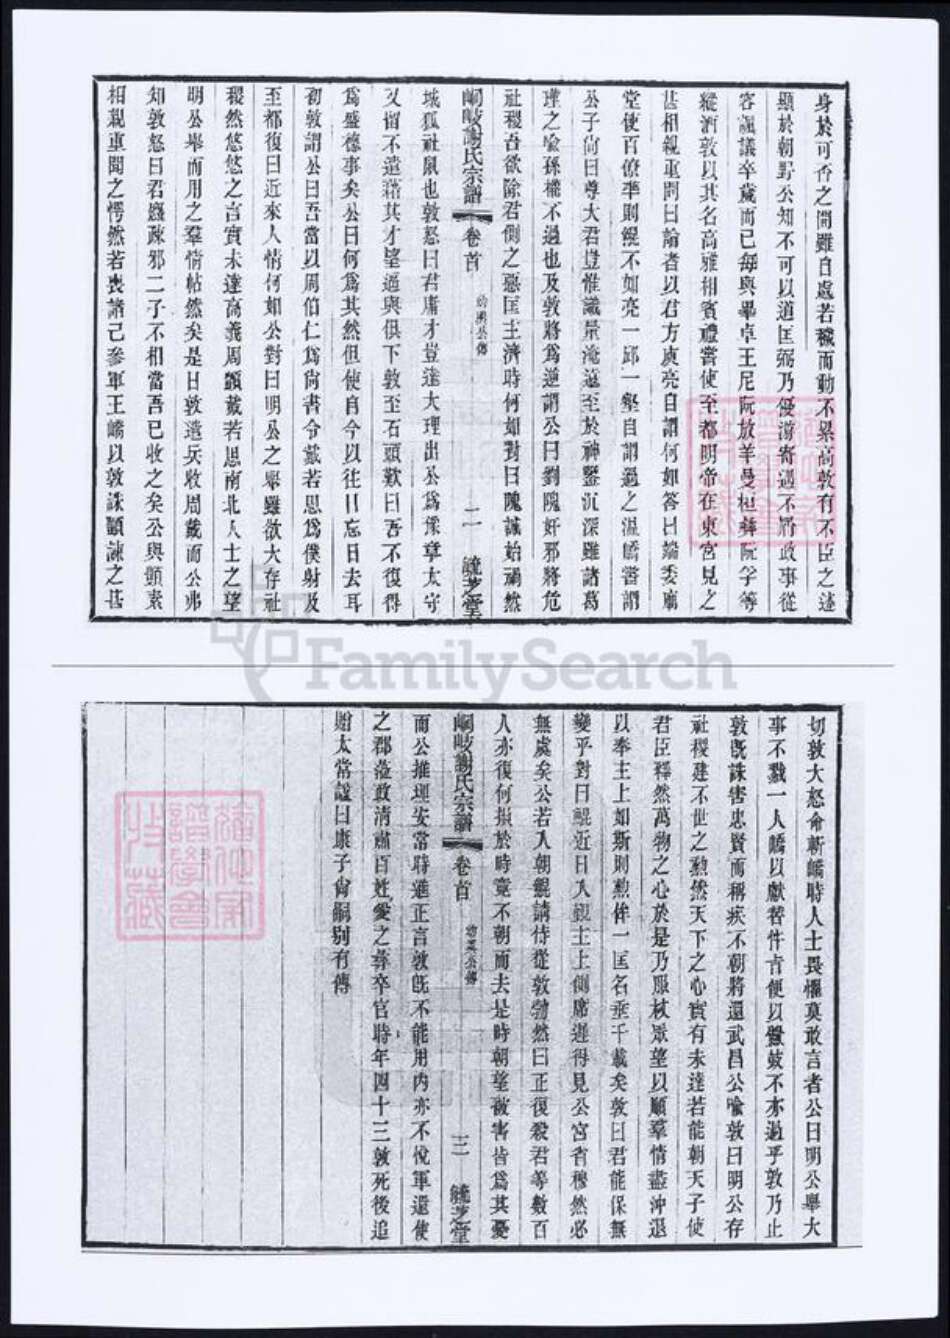 身於可否之間雖自處若穢而動不累高敦有不臣之迹
顯於朝野公知不可以道匡弼乃優游寄遇不屑政事從
容諷議卒歲而已每與畢卓王尼阮放羊曼桓彝阮孚等
縱酒敦以其名高雅相賓禮嘗使至都明帝在東宮見之
甚相親重問曰論者以君方庾亮自謂何如答曰端委廟
堂使百僚準則鯤不如亮一邱一壑自謂過之溫嶠嘗謂
公子尚曰尊大君豈惟識量淹遠至於神鑒沉深雖諸葛
瑾之喻孫權不過也及敦將為逆謂公曰劉隗奸邪將危
社稷吾欲除君側之惡匡主濟時何如對曰隗誠始禍然
峒岐謝氏宗譜 卷首 幼輿公傳 二 毓芝堂
城狐社鼠也敦怒曰君庸才豈達大理出公為豫章太守
又留不遣藉其才望逼與俱下敦至石頭歎曰吾不復得
為盛德事矣公曰何為其然但使自今以往日忘日去耳
初敦謂公曰吾當以周伯仁為尚書令戴若思為僕射及
至都復曰近來人情何如公對曰明公之舉雖欲大存社
稷然悠悠之言實未達高義周顗戴若思南北人士之望
明公舉而用之羣情帖然矣是日敦遣兵收周戴而公弗
知敦怒曰君麤疎邪二子不相當吾已收之矣公與顗素
相親重聞之愕然若喪諸己參軍王嶠以敦誅顗諫之甚
切敦大怒命斬嶠時人士畏懼莫敢言者公曰明公舉大
事不戮一人嶠以獻替忤旨便以釁鼓不亦過乎敦乃止
敦既誅害忠賢而稱疾不朝將還武昌公喻敦曰明公存
社稷建不世之勲然天下之心實有未達若能朝天子使
君臣釋然萬物之心於是乃服杖眾望以順羣情盡沖退
以奉主上如斯則勲侔一匡名垂千載矣敦曰君能保無
變乎對曰鯤近日入覲主上側席遲得見公宮省穆然必
無虞矣公若入朝鯤請侍從敦勃然曰正復殺君等數百
人亦復何損於時竟不朝而去是時朝望被害皆為其憂
峒岐謝氏宗譜 卷首 幼輿公傳 三 毓芝堂
而公推理安常時進正言敦既不能用內亦不悅軍還使
之郡蒞政清肅百姓愛之尋卒官時年四十三敦死後追
贈太常諡曰康子尚嗣别有傳
FamilySearch